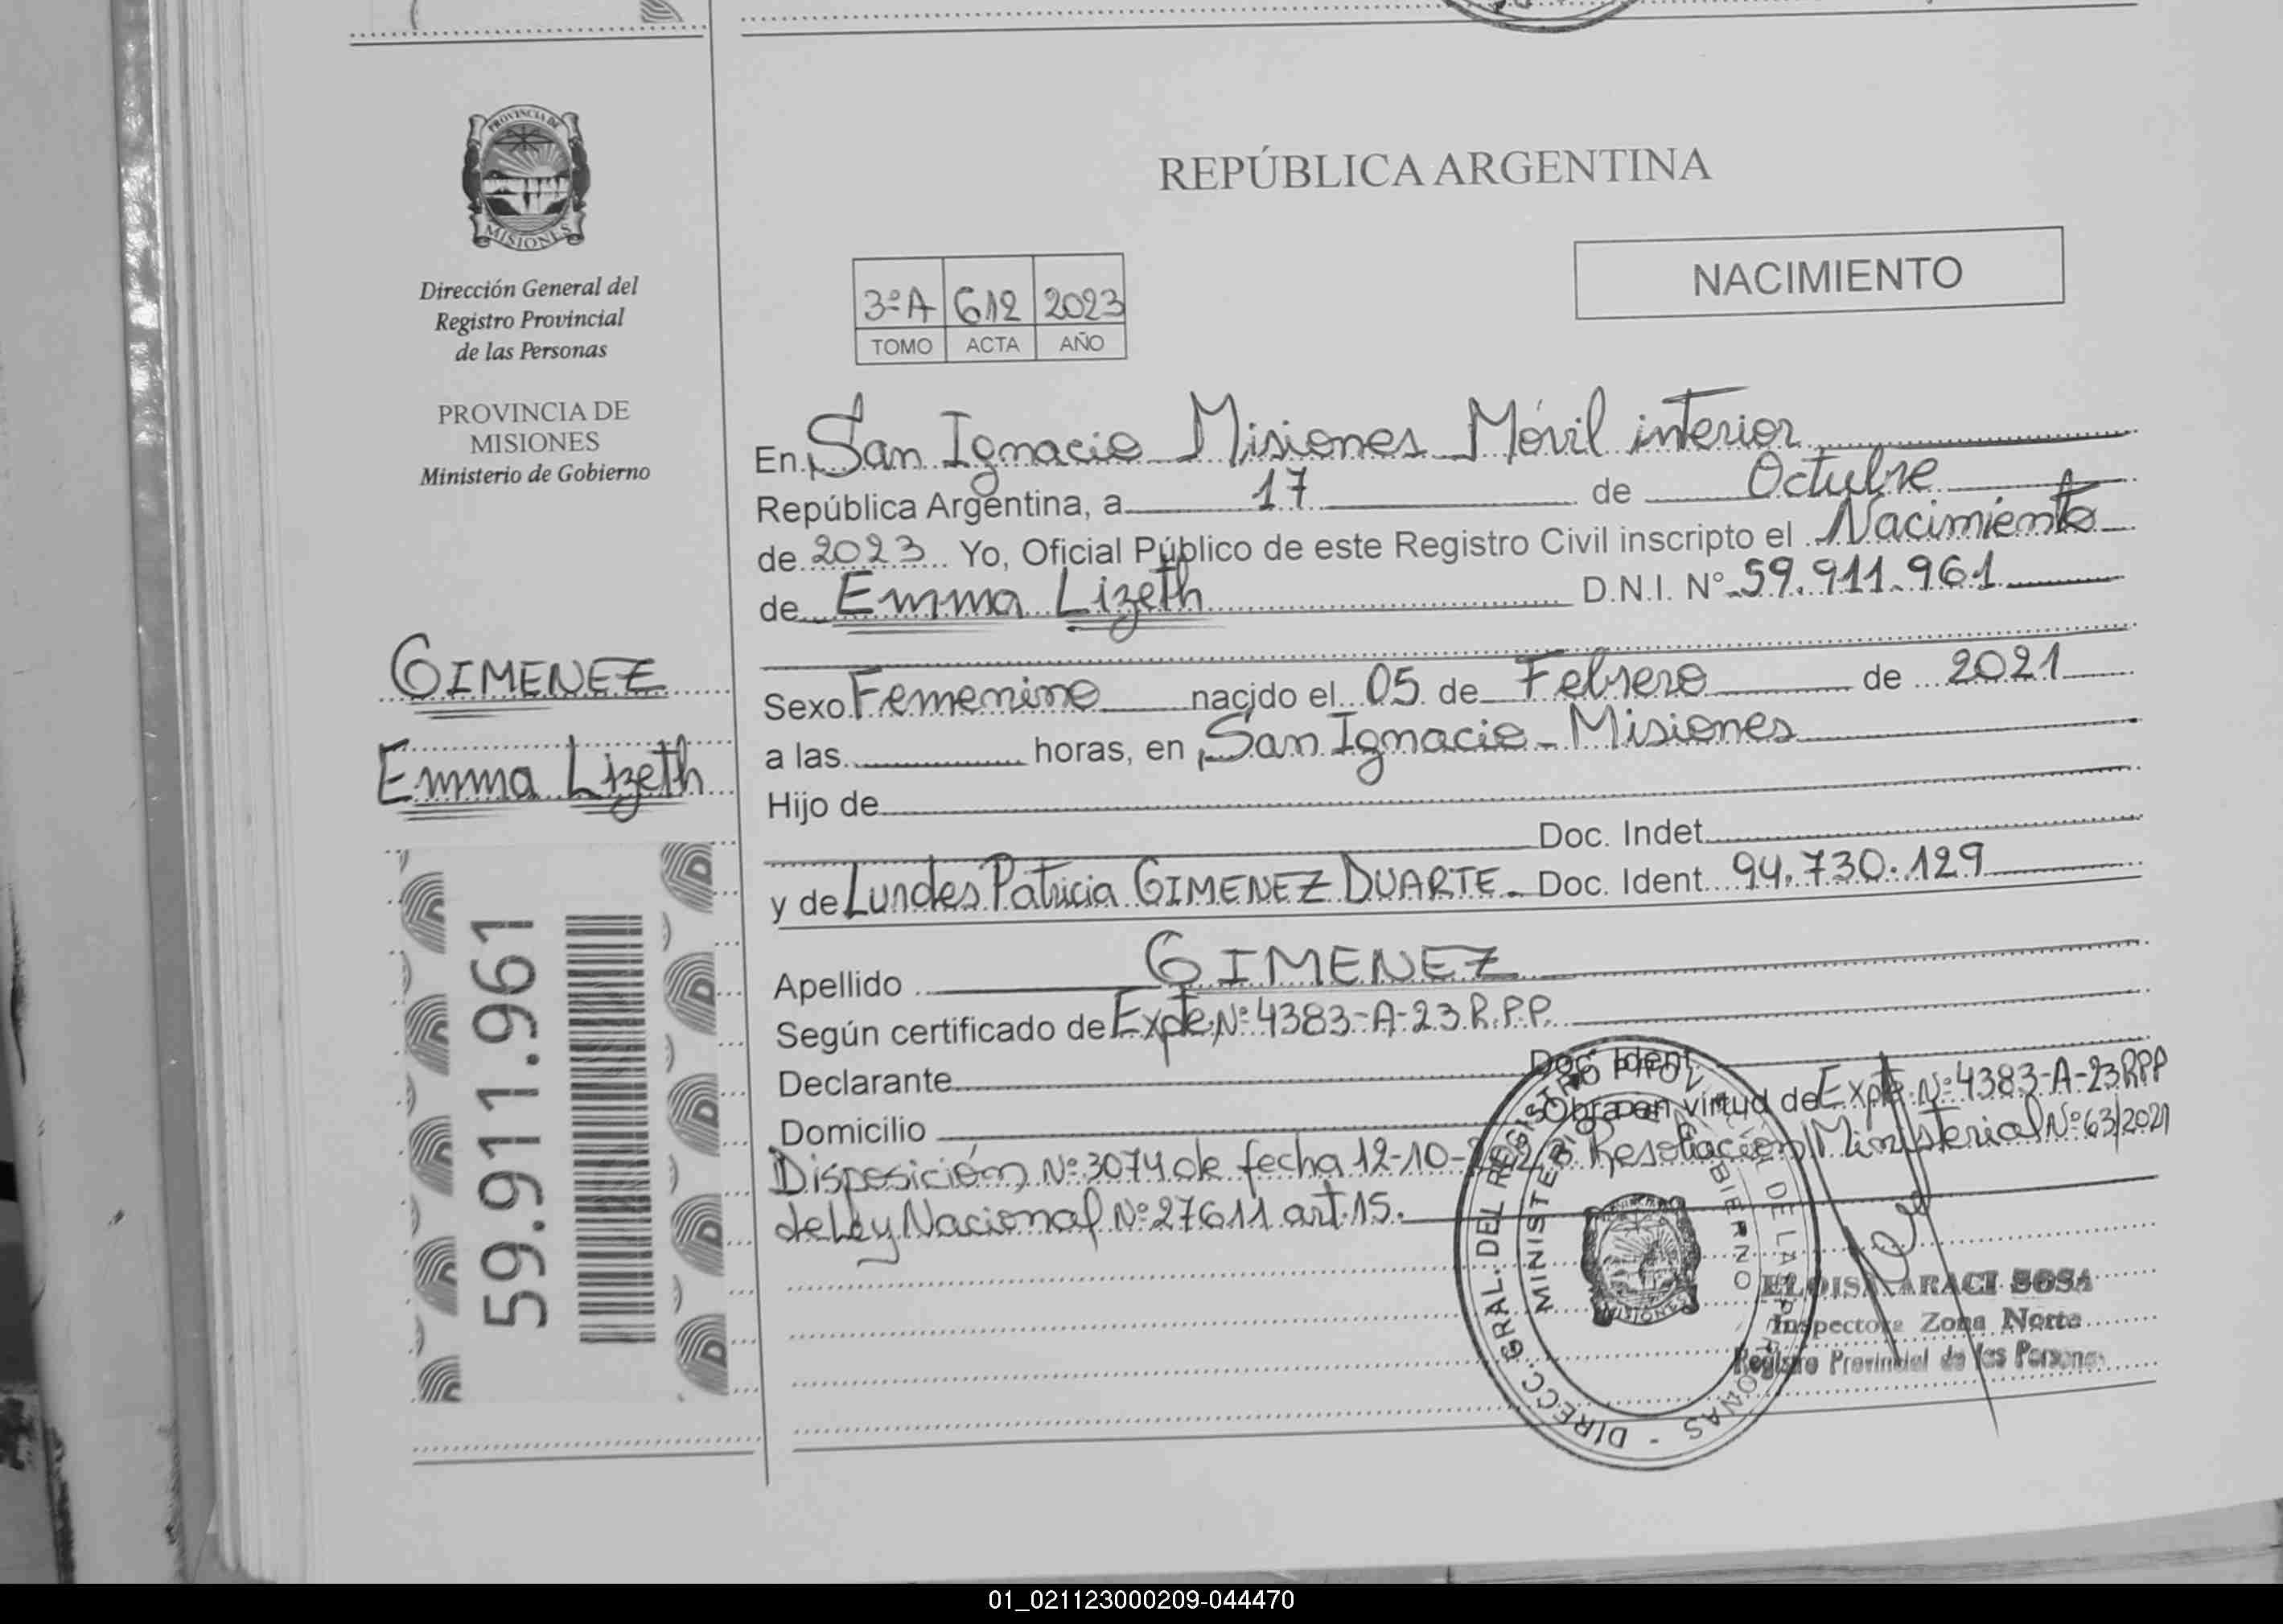 PROVINCIA DE
MISIONES
Dirección General del
Registro Provincial
de las Personas
PROVINCIA DE
MISIONES
Ministerio de Gobierno
GIMENEZ
Emma Lizeth
59.911.961
REPÚBLICA ARGENTINA
NACIMIENTO
3ºA 612 2023
TOMO ACTA AÑO
En San Ignacio Misiones Móvil interior
República Argentina, a 17 de Octubre
de 2023 Yo, Oficial Público de este Registro Civil inscripto el Nacimiento
de Emma Lizeth D.N.I. Nº 59.911.961
Sexo Femenino nacido el 05 de Febrero de 2021
a las horas, en San Ignacio - Misiones
Hijo de
Doc. Indet
y de Lurdes Patricia GIMENEZ DUARTE - Doc. Ident 94.730.129
Apellido GIMENEZ
Según certificado de Expte Nº 4383-A-23 R.P.P.
Declarante Doc. Ident
Domicilio Obra en virtud de Expte Nº 4383-A-23 RPP
Disposición Nº 3074 de fecha 12-10- Resolución Ministerial Nº 63/2021
de Ley Nacional Nº 27611 art. 15.
DIRECC. GRAL. DEL REGISTRO PROV. DE LAS PERSONAS -
MINISTERIO DE GOBIERNO
MISIONES
ELOISA ARACI SOSA
Inspectora Zona Norte
Registro Provincial de las Personas
01_021123000209-044470